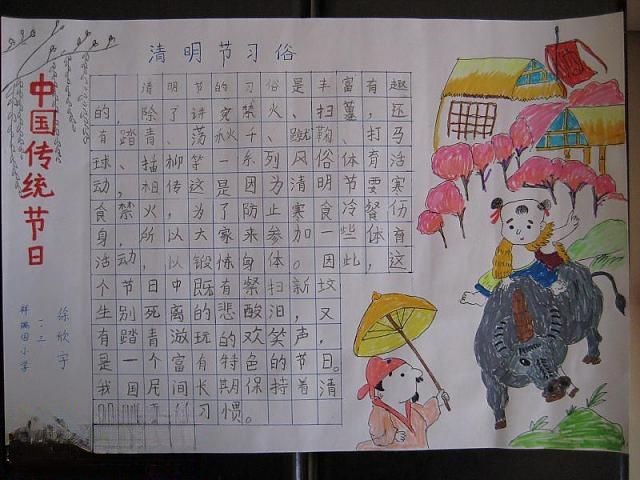 清明节习俗
中国传统节日
清明节的习俗是丰富有趣
的，除了讲究禁火、扫墓，还
有踏青、荡秋千、蹴鞠、打马
球、插柳等一系列风俗体育活
动，相传这是因为清明节要寒
食禁火，为了防止寒食冷餐伤
身，所以大家来参加一些体育
活动，以锻炼身体。因此，这
个节日中既有祭扫新坟
生别死离的悲酸泪，又
有踏青游玩的欢笑声，
是一个富有特色的节日。
我国民间长期保持着清
习惯。
徐欣宇
一.三